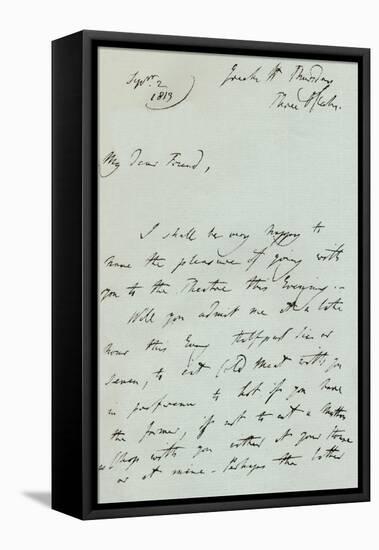 Greek St Thursday
Three o'Clock.
Sepr. 2
1813
My Dear Friend,
I shall be very happy to
have the pleasure of going with
you to the Theatre this Evening. -
Will you admit me at a late
hour this Eveng half past six or
seven, to eat Cold Meat with you
in preference to hot if you have
the former, if not to eat a Mutton
Chop with you either at your House
or at mine - Perhaps the latter